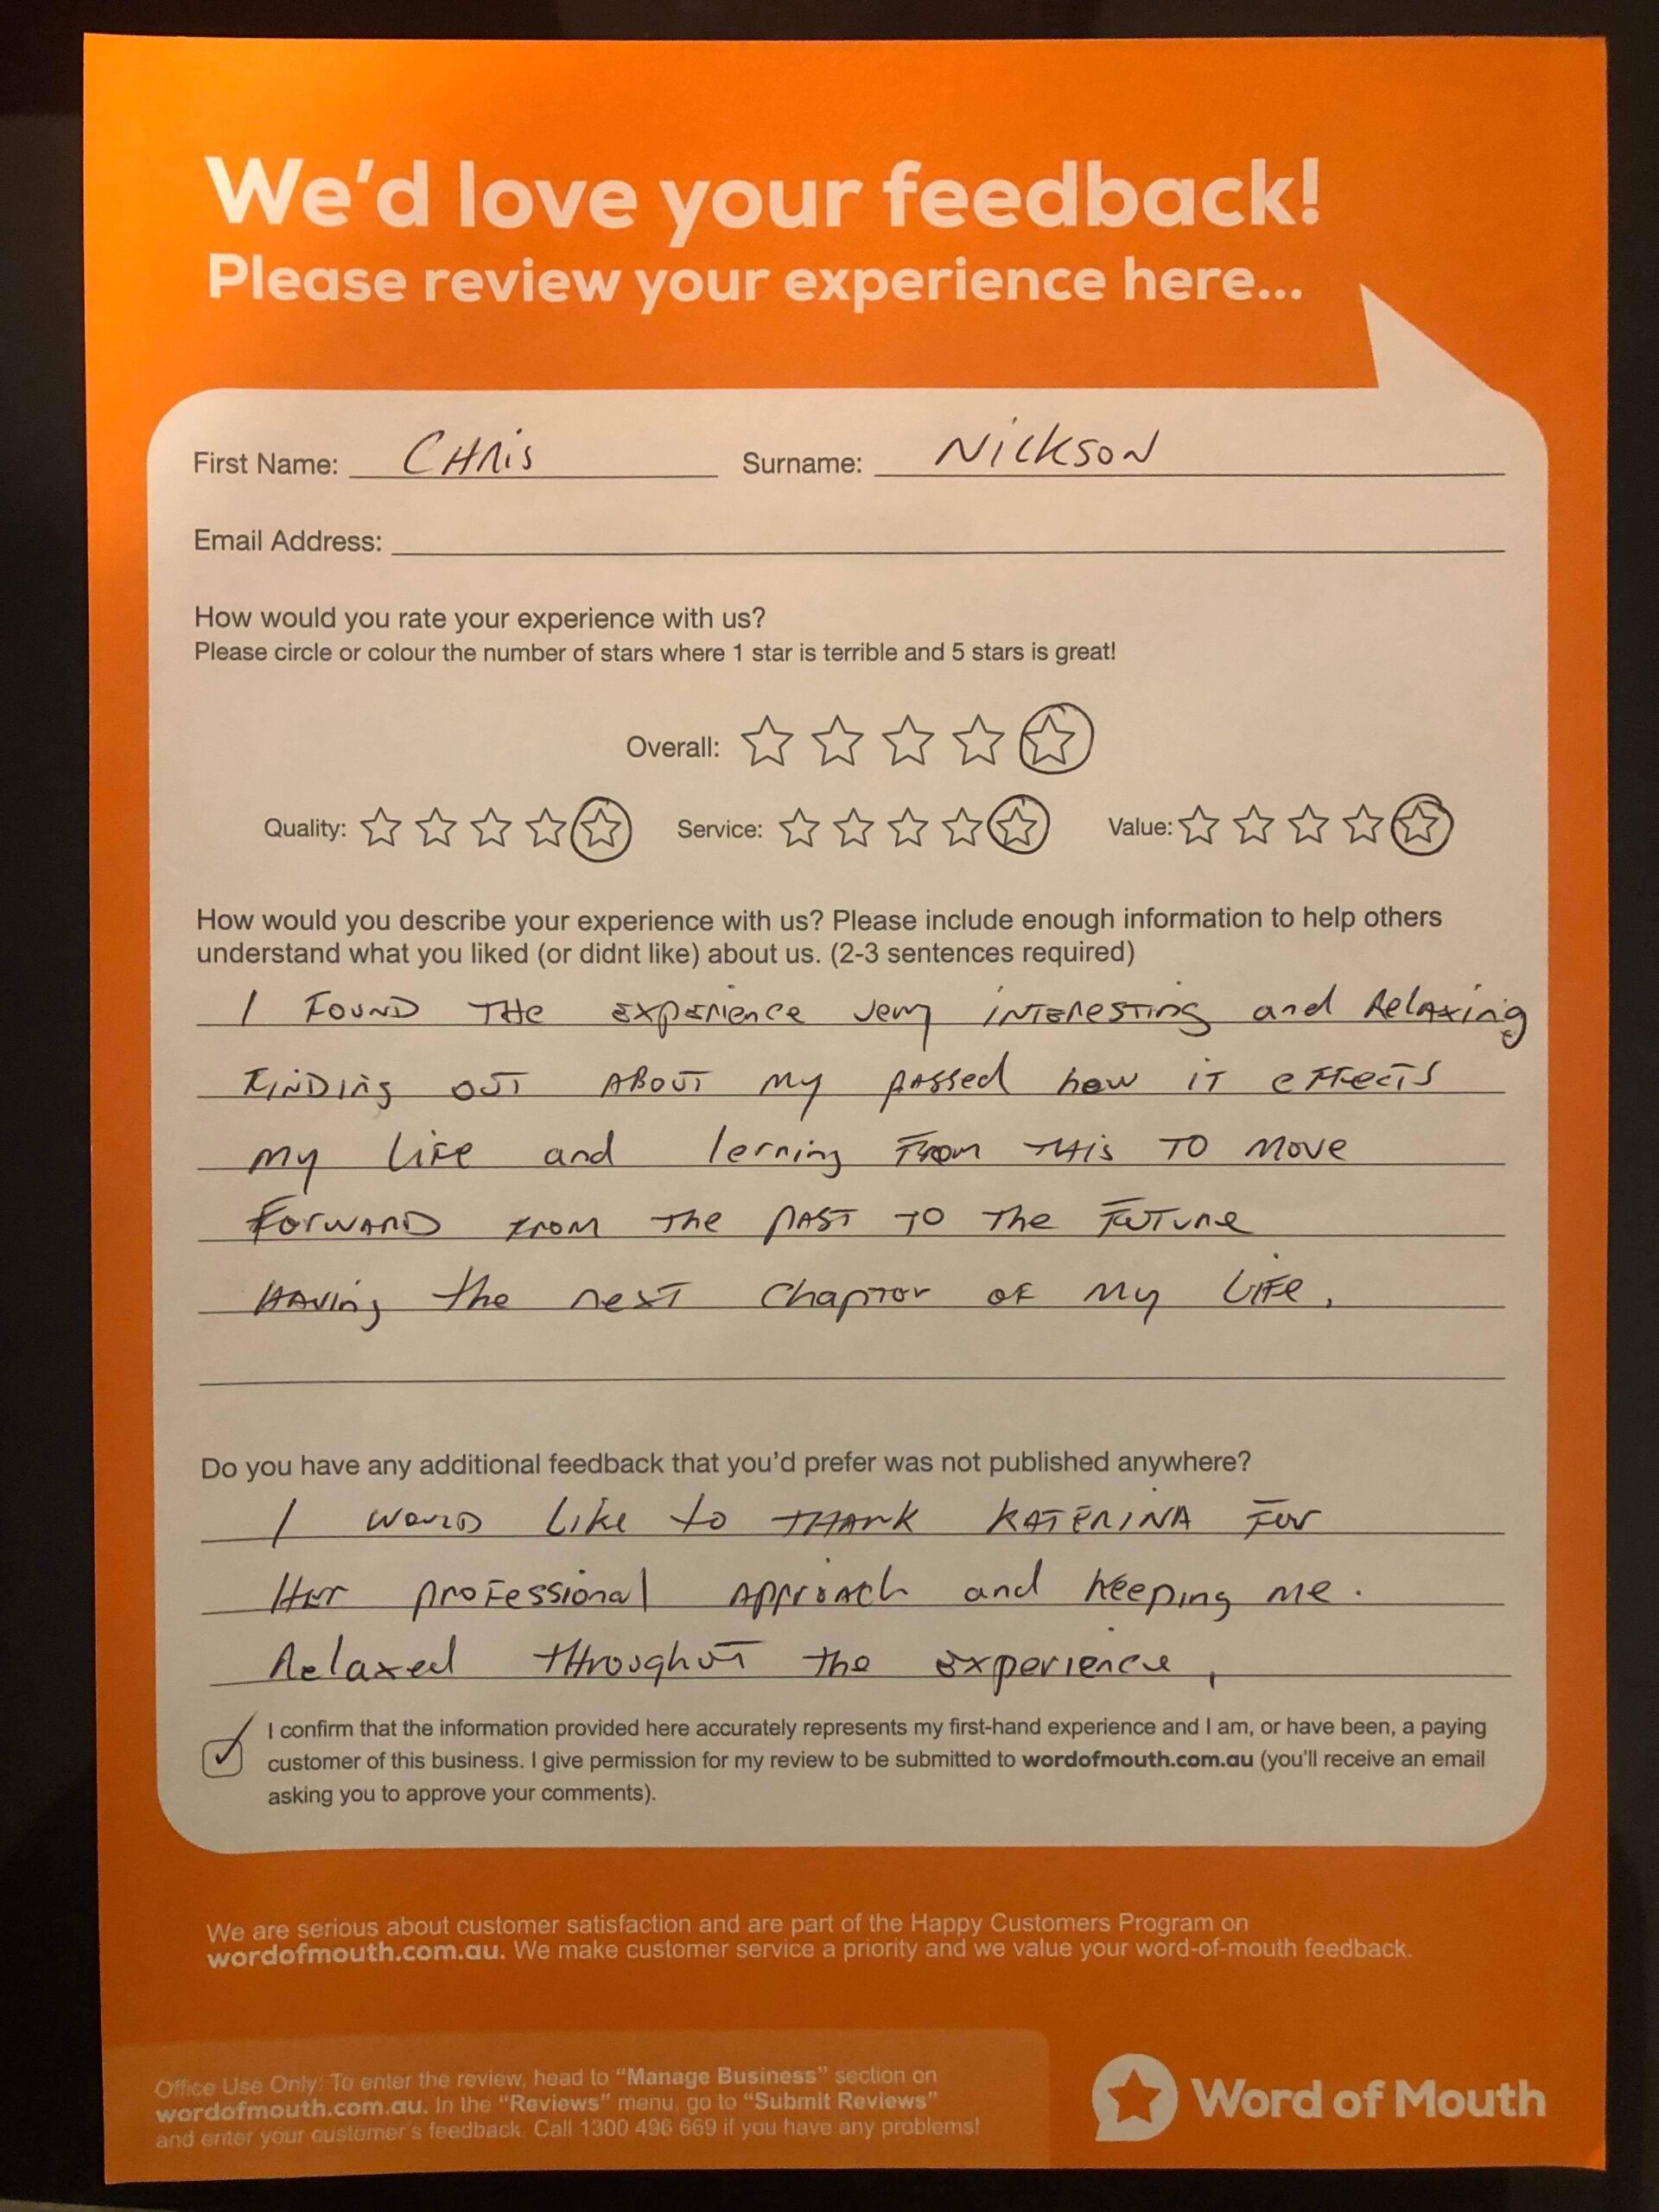 We'd love your feedback!
Please review your experience here...
First Name: CHRis Surname: NickSON
Email Address:
How would you rate your experience with us?
Please circle or colour the number of stars where 1 star is terrible and 5 stars is great!
Overall:
Quality: Service: Value:
How would you describe your experience with us? Please include enough information to help others
understand what you liked (or didnt like) about us. (2-3 sentences required)
I FOUND THe experience very iNTEResTing and RelAxing
FiNDing OUT ABOUT My passed how iT eFFecTS
my LiFe and lerning From THis TO Move
FORWARD FROM The PAST TO The FuTuRe
HAVing the nexT ChapTor OF My LiFe.
Do you have any additional feedback that you'd prefer was not published anywhere?
I WOULD Like to THANK KATERINA For
Her proFessional ApproAch and keeping me.
Relaxed THroughuT the experience,
I confirm that the information provided here accurately represents my first-hand experience and I am, or have been, a paying
customer of this business. I give permission for my review to be submitted to wordofmouth.com.au (you'll receive an email
asking you to approve your comments).
We are serious about customer satisfaction and are part of the Happy Customers Program on
wordofmouth.com.au. We make customer service a priority and we value your word-of-mouth feedback.
Office Use Only: To enter the review, head to "Manage Business" section on
wordofmouth.com.au. In the "Reviews" menu, go to "Submit Reviews"
and enter your customer's feedback. Call 1300 496 669 if you have any problems!
Word of Mouth